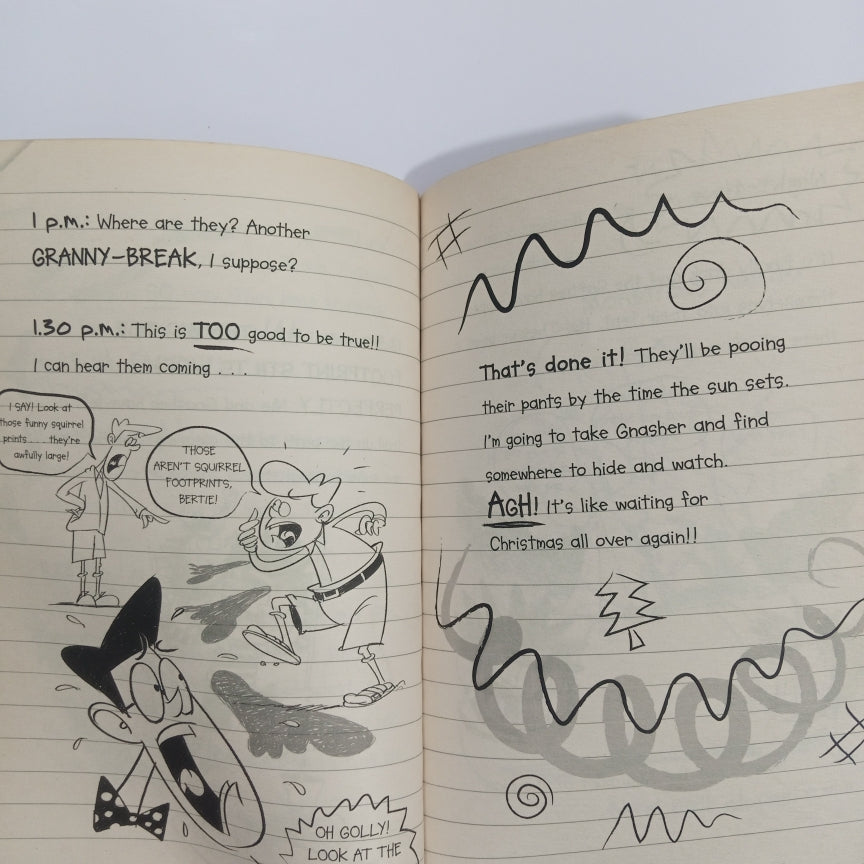 1 p.m.: Where are they? Another
GRANNY-BREAK, I suppose?
1.30 p.m.: This is TOO good to be true!!
I can hear them coming . . .
I SAY! Look at
those funny squirrel
prints . . . they're
awfully large!
THOSE
AREN'T SQUIRREL
FOOTPRINTS,
BERTIE!
OH GOLLY!
LOOK AT THE
That's done it! They'll be pooing
their pants by the time the sun sets.
I'm going to take Gnasher and find
somewhere to hide and watch.
AGH! It's like waiting for
Christmas all over again!!